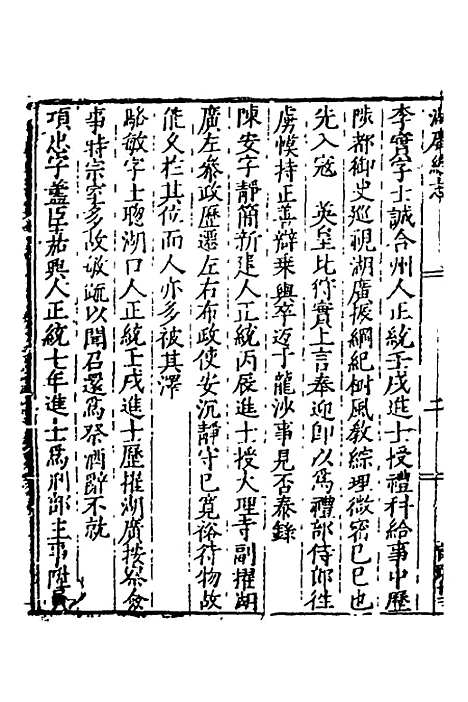 湖廣總志
二
李實字士誠合州人正統壬戌進士授禮科給事中歷
陟都御史巡視湖廣振綱紀樹風教綜理微密己巳也
先入寇 英皇北狩實上言奉迎即以為禮部侍郎往
虜慔持正善辯乗輿卒迈于龍沙事見否泰錄
陳安字靜簡新建人正統丙辰進士授大理寺副擢湖
廣左參政歷遷左右布政使安沉静守己寬裕待物故
能久於其位而人亦多被其澤
駱敏字士聰湖口人正統壬戌進士歷擢湖廣按察僉
事特宗室多故敏疏以聞召還為祭酒辭不就
項忠字藎臣嘉興人正統七年進士為刑部主事陞員